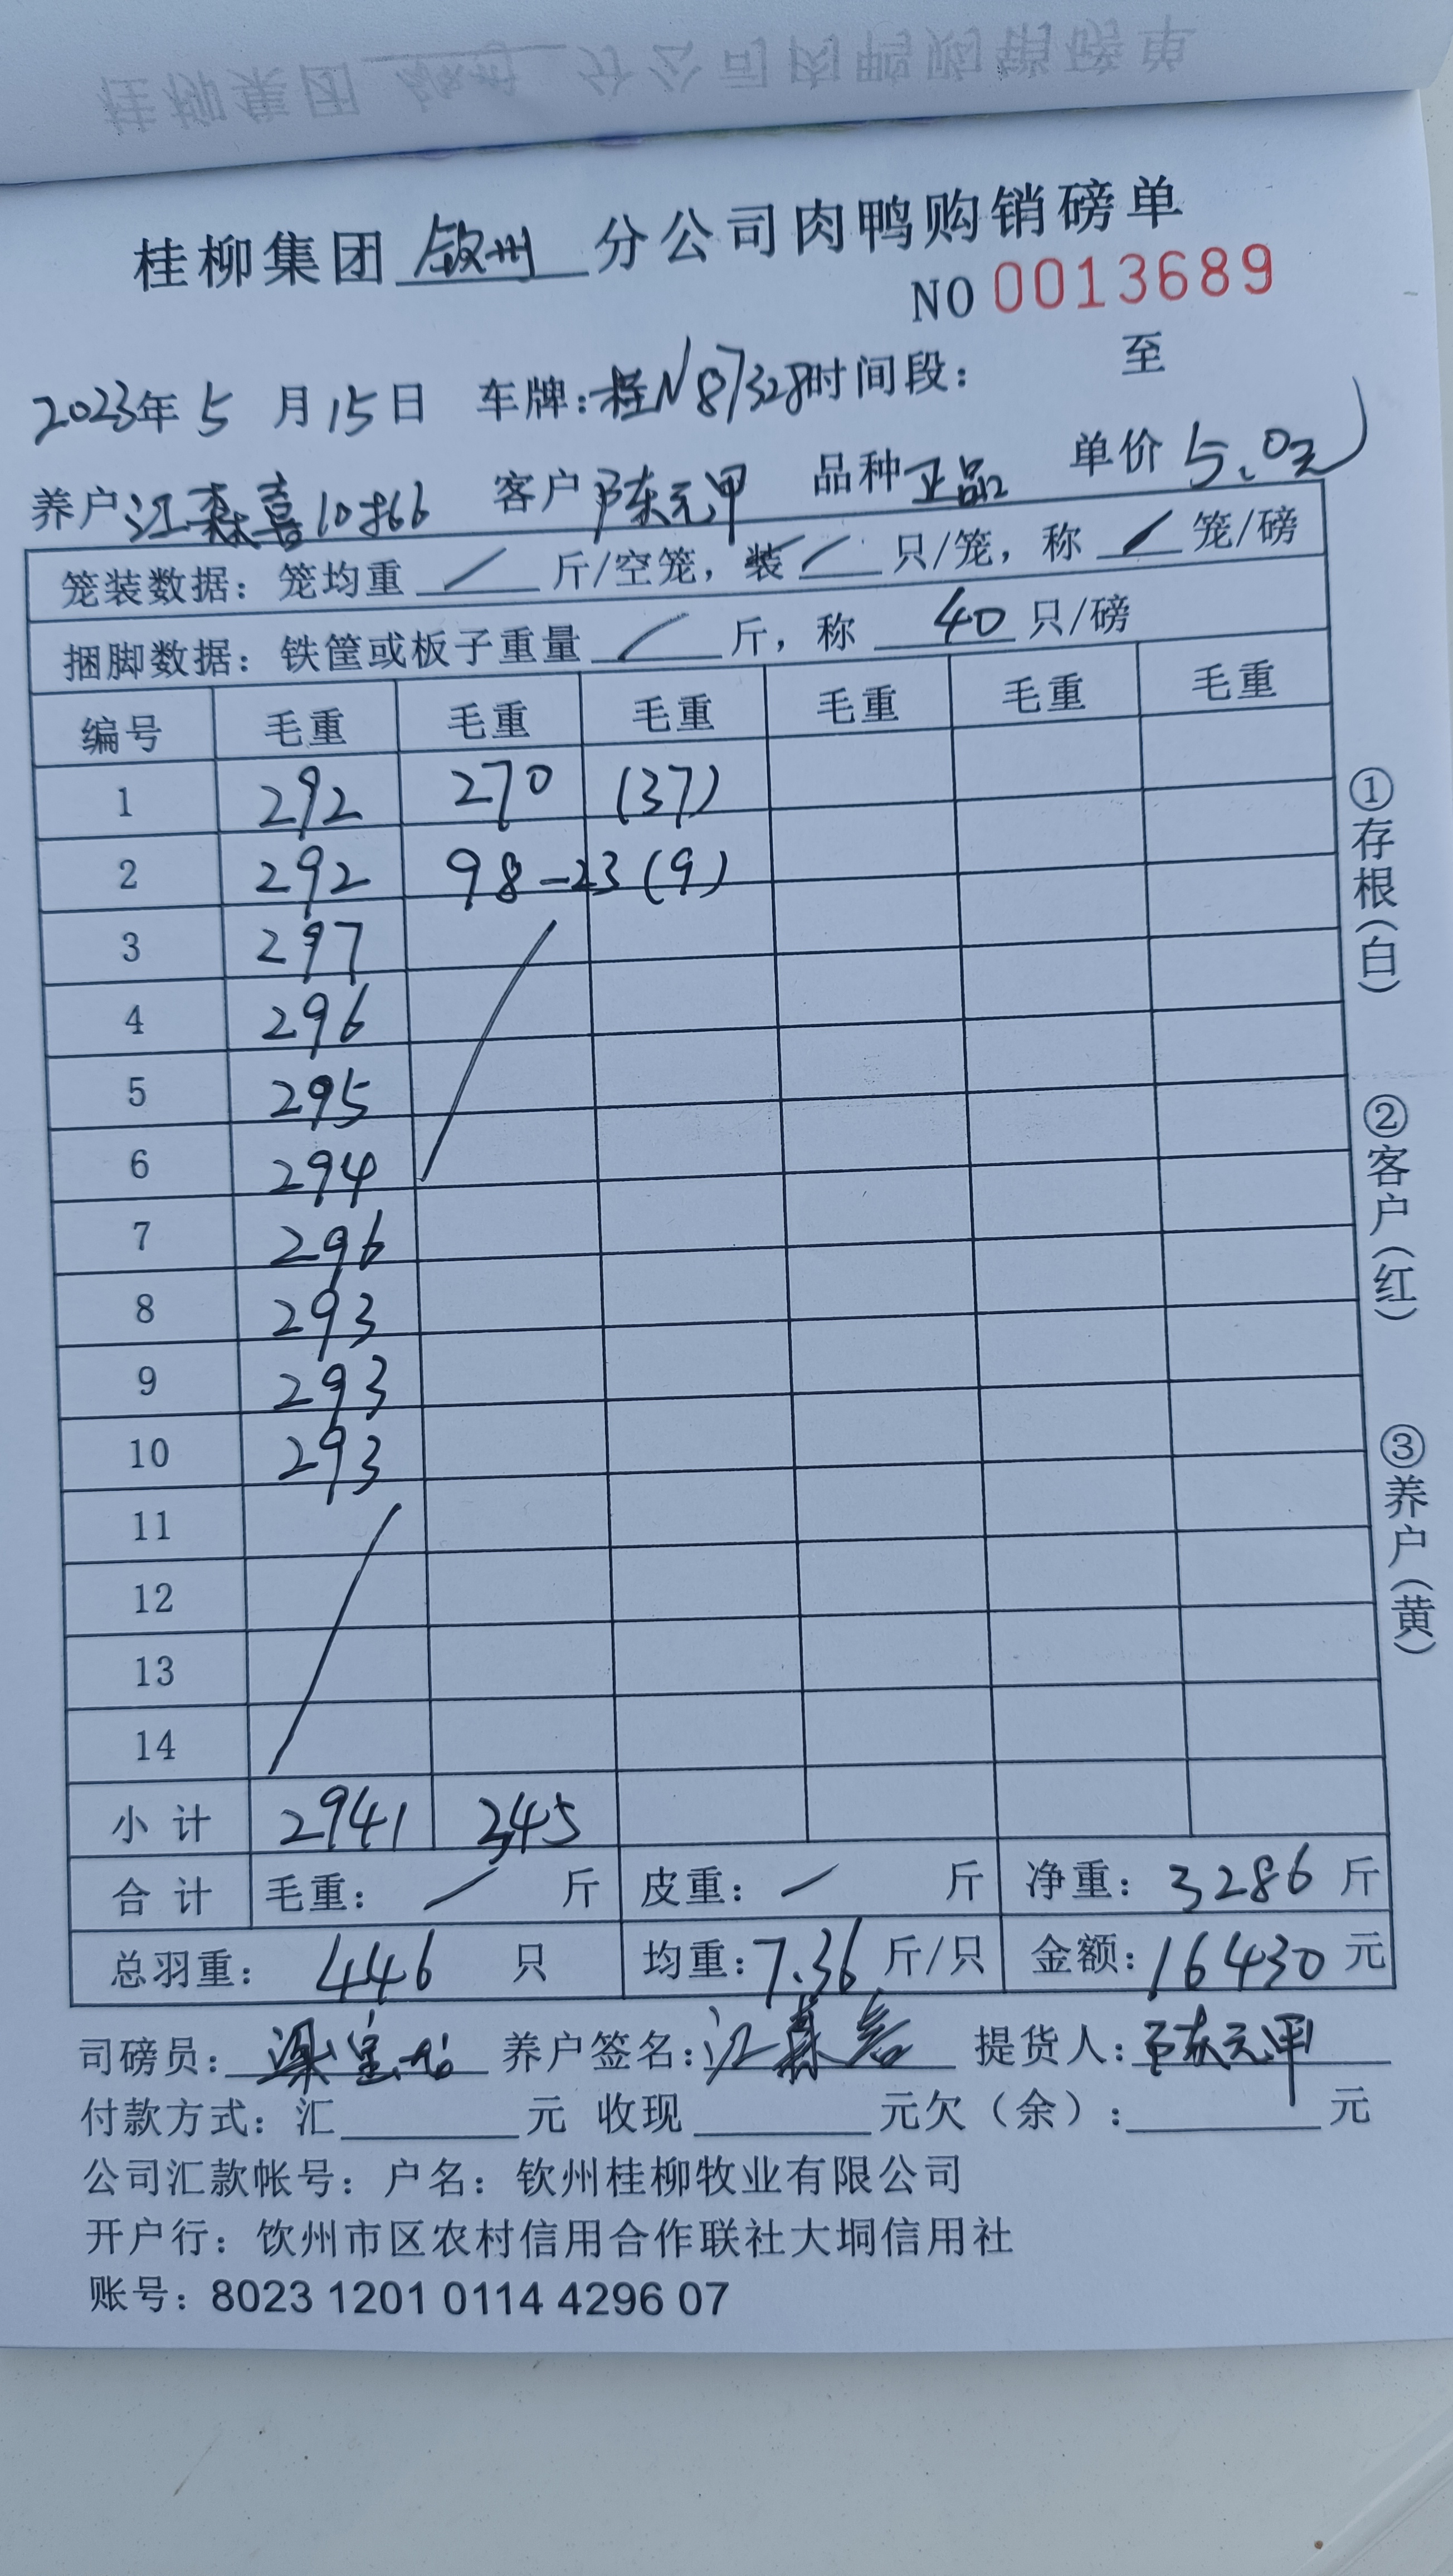 桂柳集团 钦州 分公司肉鸭购销磅单
NO 0013689
2023年 5 月 15 日 车牌:桂N87328 时间段: 至
养户 江森喜 客户 陈元甲 品种 正品 单价 5.0元
笼装数据: 笼均重 / 斤/空笼, 装 / 只/笼, 称 / 笼/磅
捆脚数据: 铁筐或板子重量 / 斤, 称 40 只/磅
编号 毛重 毛重 毛重 毛重 毛重 毛重
1 292 270 (37)
2 292 98-23 (9)
3 297
4 296
5 295
6 294
7 296
8 293
9 293
10 293
11
12
13
14
小计 2941 345
合计 毛重: / 斤 皮重: / 斤 净重: 3286 斤
总羽重: 446 只 均重: 7.36 斤/只 金额: 16430 元
司磅员: 养户签名: 江森喜 提货人: 陈元甲
付款方式: 汇 元 收现 元欠(余): 元
公司汇款帐号: 户名: 钦州桂柳牧业有限公司
开户行: 钦州市区农村信用合作联社大垌信用社
账号: 8023 1201 0114 4296 07
①存根(白)
②客户(红)
③养户(黄)